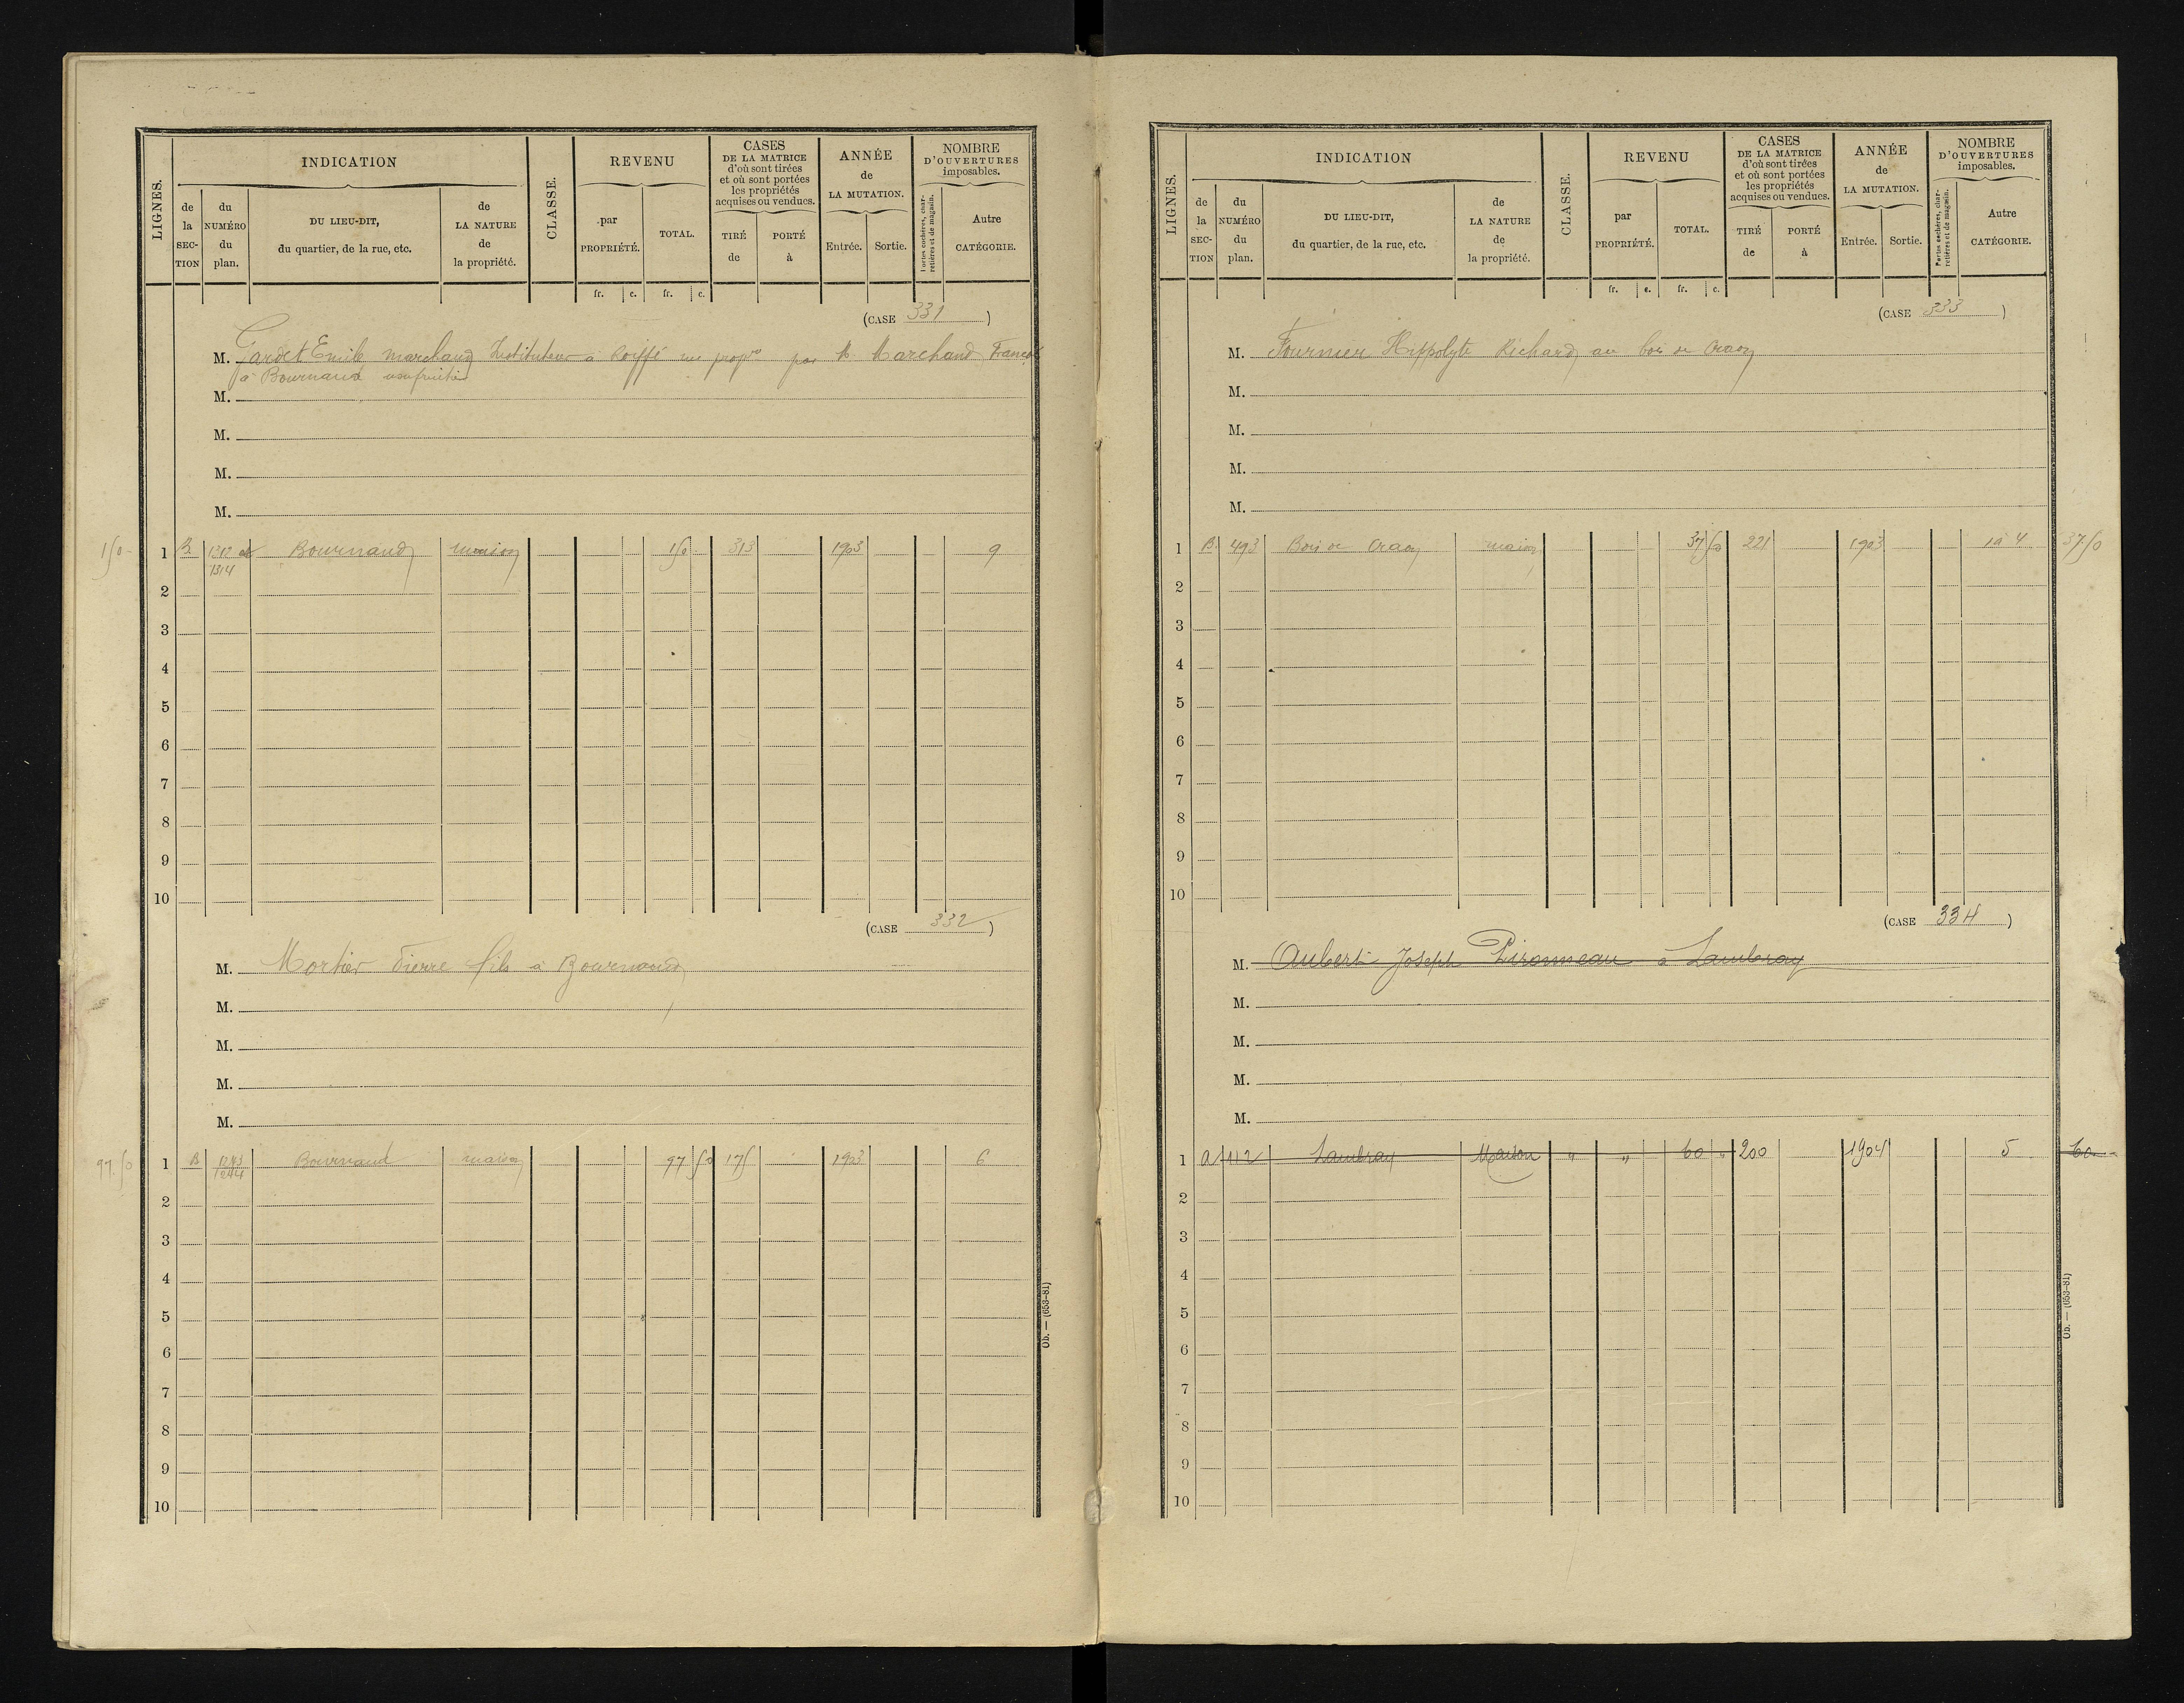 LIGNES.
INDICATION
de la SECTION
du NUMÉRO du plan.
DU LIEU-DIT, du quartier, de la rue, etc.
de LA NATURE de la propriété.
CLASSE.
REVENU
par PROPRIÉTÉ.
TOTAL.
CASES DE LA MATRICE d'où sont tirées et où sont portées les propriétés acquises ou vendues.
TIRÉ de
PORTÉ à
ANNÉE de LA MUTATION.
Entrée.
Sortie.
NOMBRE D'OUVERTURES imposables.
Portes cochères, charretières et de magasin.
Autre CATÉGORIE.
fr. c. fr. c.
(CASE 331)
M. Gardet Emile marchand Instituteur à Roiffé nu propre par M. Marchand François
à Bournand usufruitier
M.
M.
M.
M.
150 1 B 1312 et Bournand maison 150 313 1903 9
1314
2
3
4
5
6
7
8
9
10
(CASE 332)
M. Mortier Pierre fils à Bournand
M.
M.
M.
M.
97.50 1 B 1243 Bournand maison 97 50 175 1903 6
1244
2
3
4
5
6
7
8
9
10
Ob. — (653-81)
LIGNES.
INDICATION
de la SECTION
du NUMÉRO du plan.
DU LIEU-DIT, du quartier, de la rue, etc.
de LA NATURE de la propriété.
CLASSE.
REVENU
par PROPRIÉTÉ.
TOTAL.
CASES DE LA MATRICE d'où sont tirées et où sont portées les propriétés acquises ou vendues.
TIRÉ de
PORTÉ à
ANNÉE de LA MUTATION.
Entrée.
Sortie.
NOMBRE D'OUVERTURES imposables.
Portes cochères, charretières et de magasin.
Autre CATÉGORIE.
fr. c. fr. c.
(CASE 333)
M. Fournier Hippolyte Richard au bois de Craon
M.
M.
M.
M.
1 B. 493 Bois de Craon maison 37 50 221 1903 1 à 4 37 50
2
3
4
5
6
7
8
9
10
(CASE 334)
M. Aubert Joseph Pironneau à Lambray
M.
M.
M.
M.
1 A 112 Lambray Maison " " 60 " 200 1904 5 60
2
3
4
5
6
7
8
9
10
Ob. — (653-81)